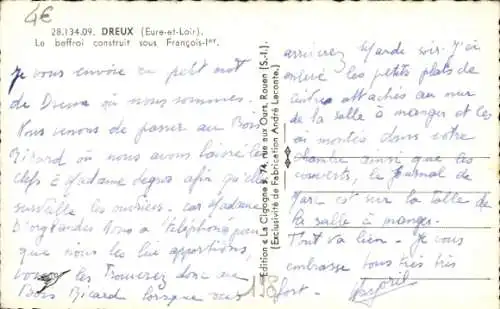 4€
28.134.09. DREUX (Eure-et-Loir).
Le beffroi construit sous François-Ier.
Je vous envoie ce petit mot
de Dreux où nous sommes.
Nous venons de passer au Bois
Ricard où nous avons laissé les
clefs à Madame afin qu'elle
surveille les ouvriers. car Madame
D' Nous a téléphoné pour
que nous les lui apportions,
vous les trouverez donc au
Bois Ricard lorsque vous
Edition « La Cigogne », 74, rue aux Ours, Rouen (S.-I.).
(Exclusivité de Fabrication André Leconte.)
arriverez Mardi soir. J'ai
enlevé les petits plats de
attachés au mur
de la salle à manger et les
ai montés dans votre
chambre ainsi que les
couverts. le journal de
Marc est sur la table de
la salle à manger.
Tout va bien. Je vous
embrasse tous très très
fort.